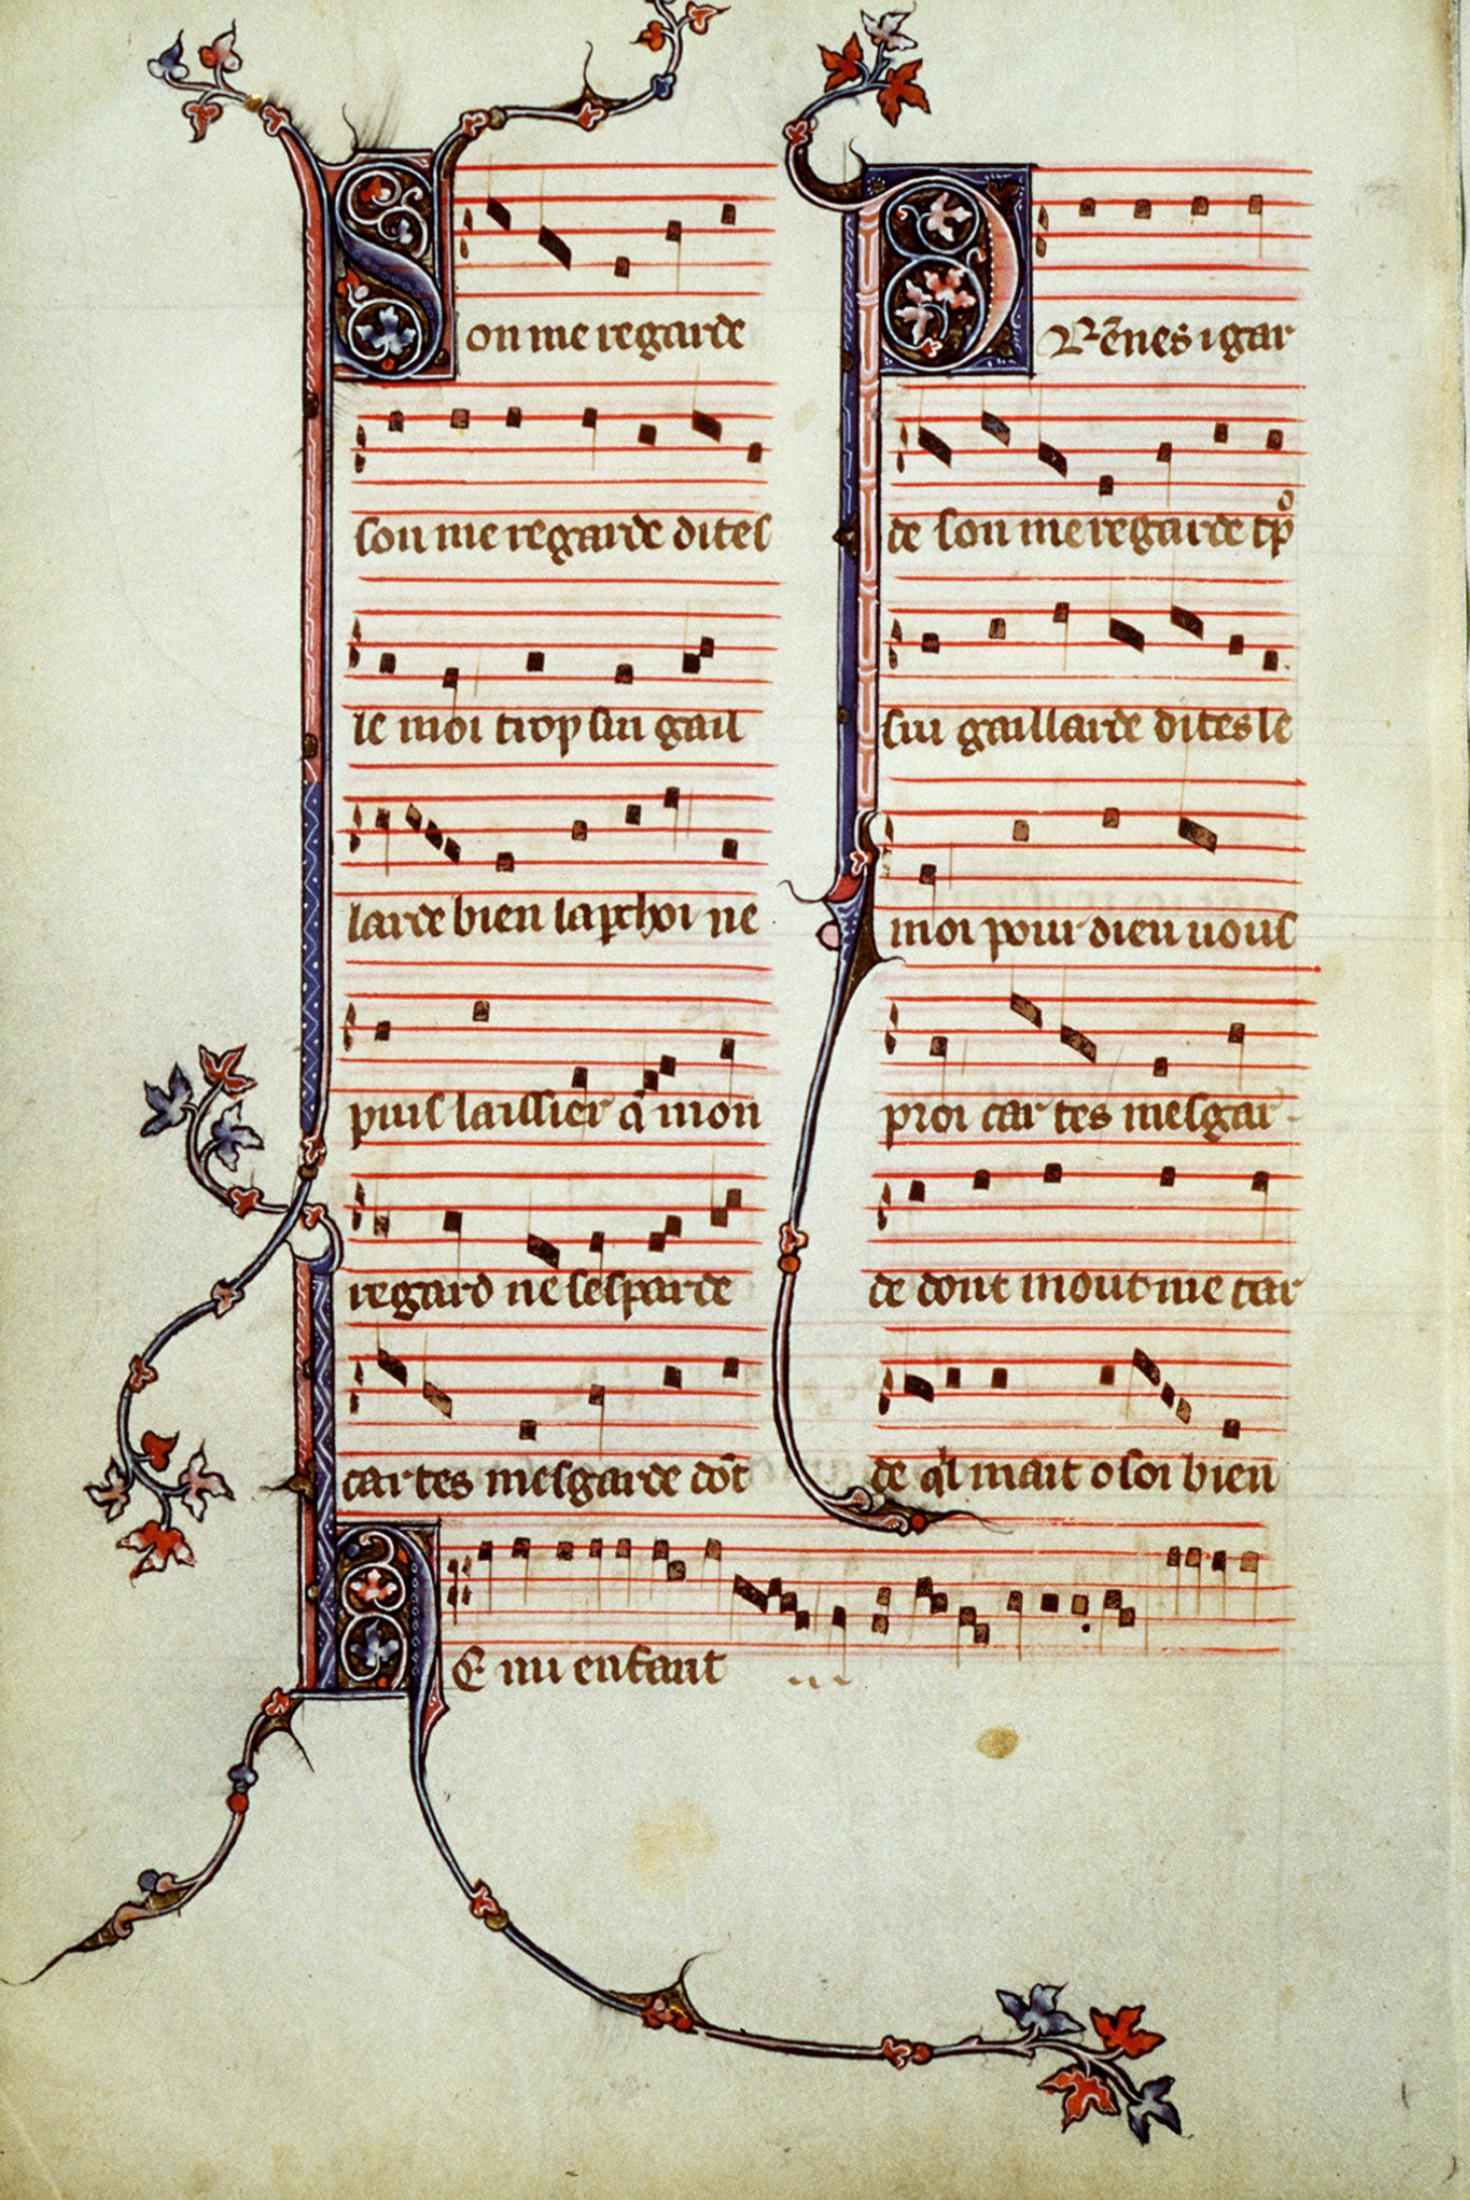 Son me regarde
son me regarde dites
le moi trop sui gail
larde bien laꝑchoi ne
puis laissier q̄ mon
regard ne sesparde
car tes mesgarde dōt
PRēnes i gar
de son me regarde tͦp
sui gaillarde dites le
moi pour dieu uous
proi car tes mesgar-
de dont mout me tar
de ql mait o soi bien
He mi enfant